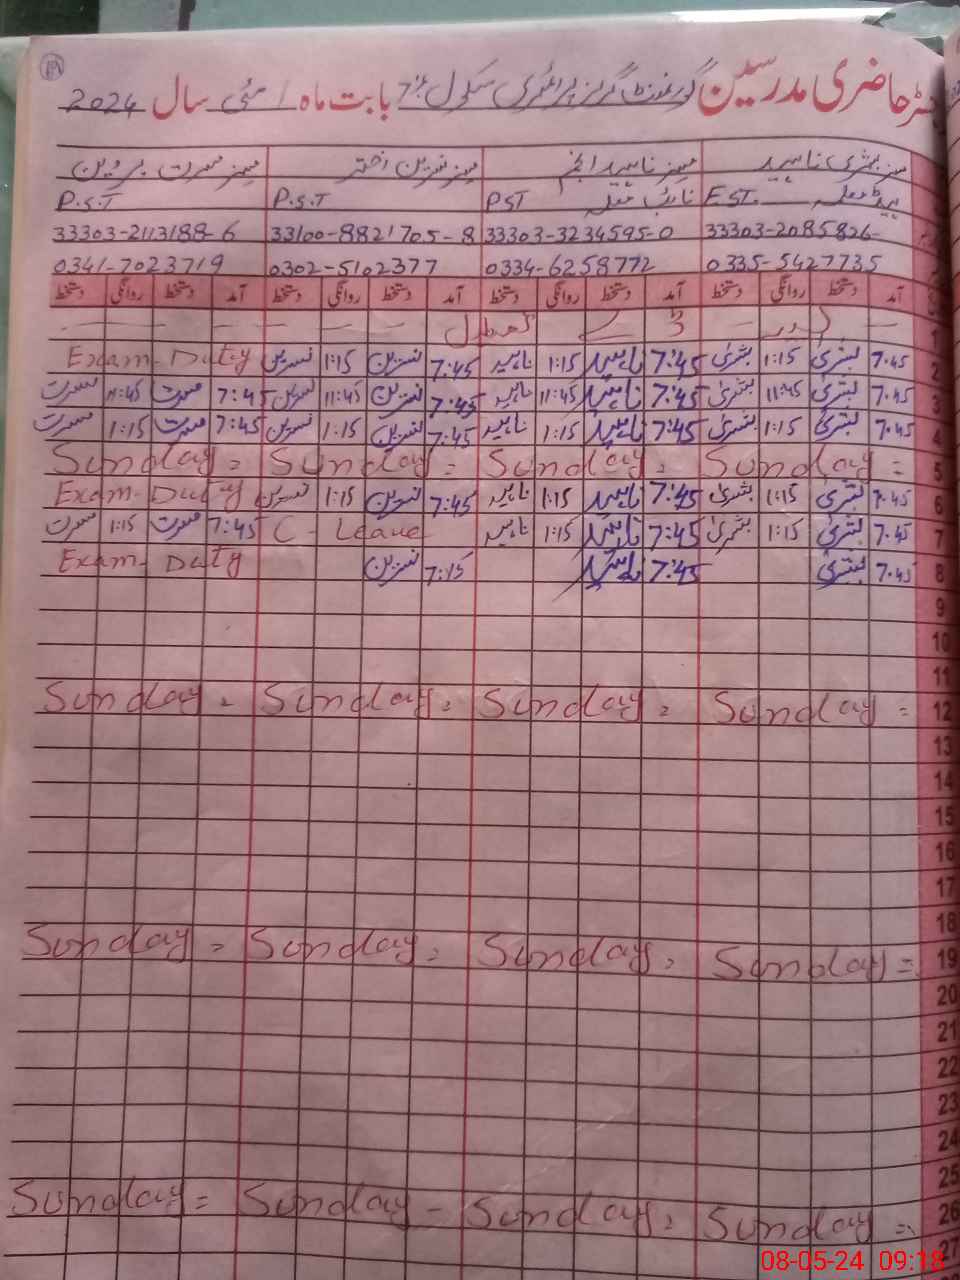 رجسٹر حاضری مدرسین گورنمنٹ گرلز پرائمری سکول نمبر 7 بابت ماہ مئی سال 2024
مسز بشریٰ ناہید مسز ناہید انجم مسز نسرین اختر مسز مسرت پروین
ہیڈ معلمہ E.S.T. نائب معلمہ PST P.S.T P.S.T
33303-2085826- 33303-3234595-0 33100-8821705-8 33303-2113188-6
0335-5427735 0334-6258772 0302-5102377 0341-7023719
آمد دستخط روانگی دستخط آمد دستخط روانگی دستخط آمد دستخط روانگی دستخط آمد دستخط روانگی دستخط
1 تعطیل
2 7:45 بشریٰ 1:15 بشریٰ 7:45 ناہید 1:15 ناہید 7:45 نسرین 1:15 نسرین Exam-Duty
3 7:45 بشریٰ 11:45 بشریٰ 7:45 ناہید 11:45 ناہید 7:45 نسرین 11:45 نسرین 7:45 مسرت 11:45 مسرت
4 7:45 بشریٰ 1:15 بشریٰ 7:45 ناہید 1:15 ناہید 7:45 نسرین 1:15 نسرین 7:45 مسرت 1:15 مسرت
5 Sunday = Sunday = Sunday = Sunday =
6 7:45 بشریٰ 1:15 بشریٰ 7:45 ناہید 1:15 ناہید 7:45 نسرین 1:15 نسرین Exam-Duty
7 7:45 بشریٰ 1:15 بشریٰ 7:45 ناہید 1:15 ناہید C-Leave 7:45 مسرت 1:15 مسرت
8 7:45 بشریٰ 7:45 ناہید 7:15 نسرین Exam-Duty
9
10
11
12 Sunday = Sunday = Sunday = Sunday =
13
14
15
16
17
18
19 Sunday = Sunday = Sunday = Sunday =
20
21
22
23
24
25
26 Sunday = Sunday - Sunday = Sunday =
27
08-05-24 09:18